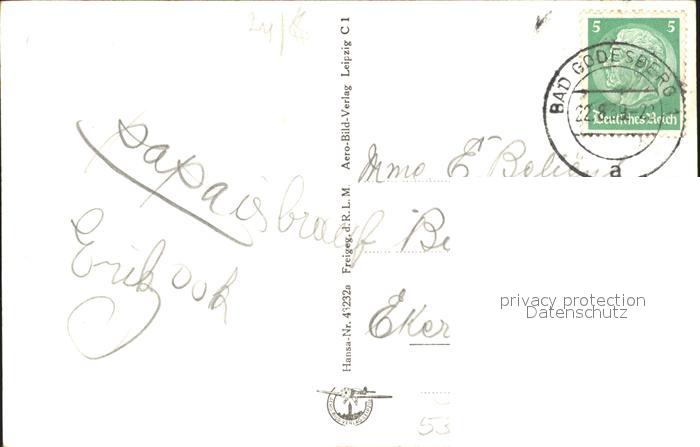 24/8
5 5
Deutsches Reich
BAD GODESBERG
22.8.39-22
a
papa is braaf
Erik ook
Hansa-Nr. 43232a Freigeg. d. R. L. M. Aero-Bild-Verlag Leipzig C 1
Mme E
Be
Eker
privacy protection
Datenschutz
53